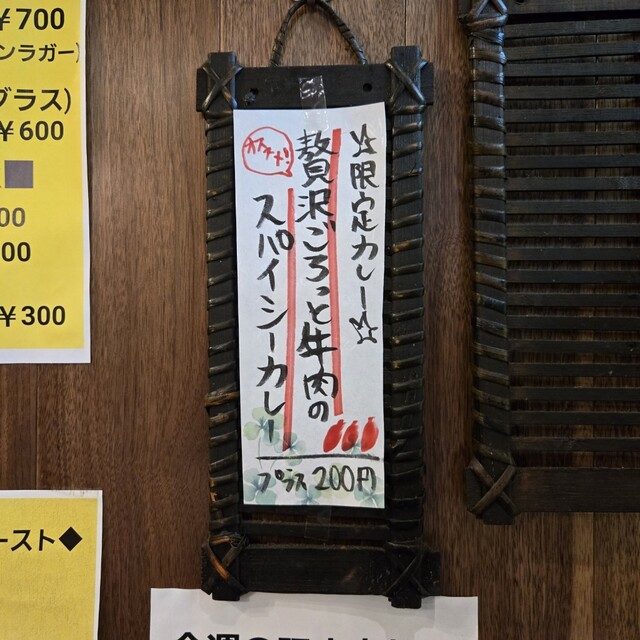 ☆限定カレー☆
贅沢ごろっと牛肉の
スパイシーカレー
オススメ!
プラス200円
¥700
ンラガー)
グラス)
¥600
00
00
¥300
ースト◆